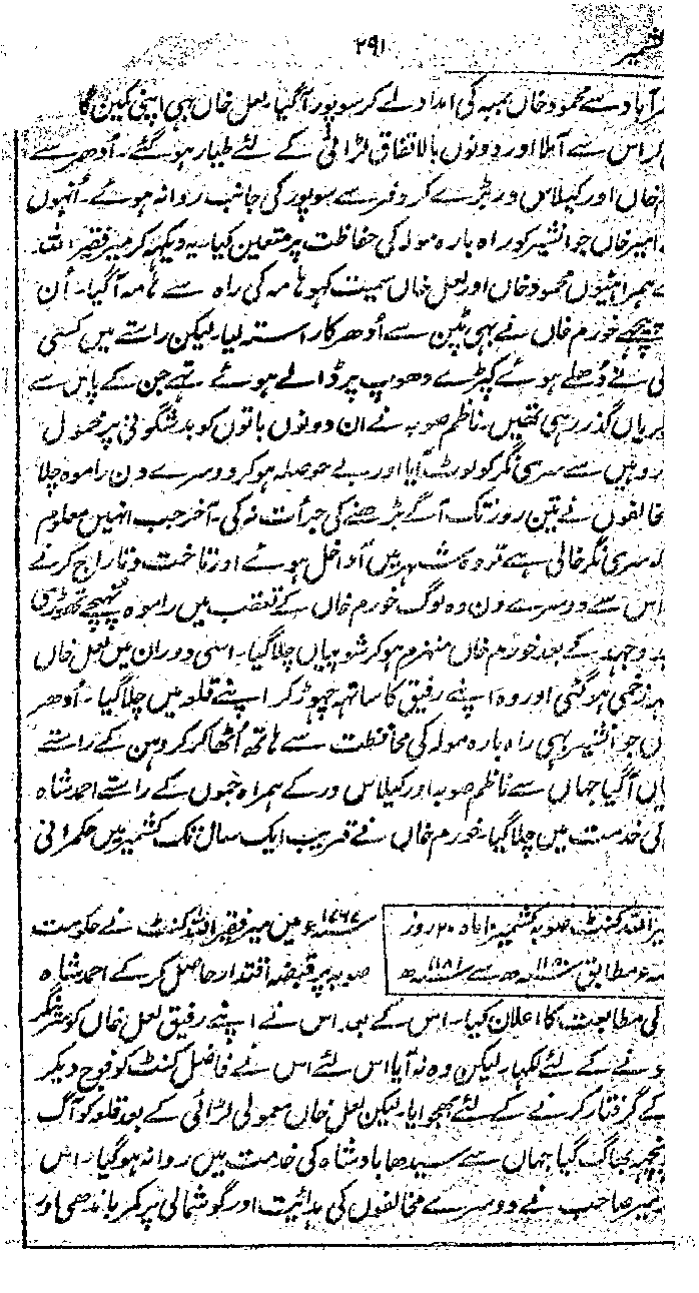 ۲۹۱
کشمیر
آباد سے محمود خاں بمبہ کی امداد لے کر سوپور آگیا۔ لعل خاں بہی اپنی کمین گا
کر اس سے آملا اور دونوں بالاتفاق لڑائی کے لئے طیار ہو گئے۔ اُدھر سے
خاں اور کیلاس در بڑے کروفر سے سوپور کی جانب روانہ ہوئے۔ اُنہوں
امیر خاں جوانشیر کو راہ بارہ مولہ کی حفاظت پر متعین کیا۔ یہ دیکہہ کر میر فقیر اللہ
ہمراہیوں محمود خاں اور لعل خاں سمیت کہو ہامہ کی راہ سے ہامہ آگیا۔ اُن
پیچھے خورم خاں نے بہی پٹن سے اُدھر کا راستہ لیا۔ لیکن راستے میں کسی
نے دُھلے ہوئے کپڑے دھوپ پر ڈالے ہوئے تہے جن کے پاس سے
بریاں گذر رہی تھیں۔ ناظم صوبہ نے ان دونوں باتوں کو بدشگونی پر محمول
وہیں سے سری نگر کو لوٹ آیا اور بے حوصلہ ہو کر دوسرے دن راموہ چلا
مخالفوں نے تین روز تک آگے بڑھنے کی جرأت نہ کی۔ آخر جب انہیں معلوم
کہ سری نگر خالی ہے تو وہ شہر میں آ داخل ہوئے اور تاخت و تاراج کرنے
اس سے دوسرے دن وہ لوگ خورم خاں کے تعقب میں راموہ پہنچے تھوڑی
جدوجہد کے بعد خورم خاں منہزم ہو کر شوپیاں چلا گیا۔ اسی دوران میں لعل خاں
زخمی ہو گئی اور وہ اپنے رفیق کا ساتھ چہوڑ کر اپنے قلعہ میں چلا گیا۔ اُدھر
جوانشیر بہی راہ بارہ مولہ کی محافظت سے ہاتھ اُٹھا کر کروہن کے راستے
آگیا جہاں سے ناظم صوبہ اور کیلاس در کے ہمراہ جموں کے راستے احمد شاہ
کی خدمت میں چلا گیا۔ خورم خاں نے قریب ایک سال تک کشمیر میں حکمرانی
میر فقیر اللہ کنٹ صوبہ کشمیر
۱۷۶۷ء میں میر فقیر اللہ کنٹ نے حکومت
مطابق ۱۱۸۰ھ سے ۱۱۸۱ھ
صوبہ پر قبضہ اقتدار حاصل کر کے احمد شاہ
کی مطابعت کا اعلان کیا۔ اس کے بعد اس نے اپنے رفیق لعل خاں کو سرینگر
نے کے لئے لکہا۔ لیکن وہ نہ آیا اس لئے اس نے فاضل کنٹ کو فوج دیکر
کے گرفتار کرنے کے لئے بھجوایا۔ لیکن لعل خاں معمولی لڑائی کے بعد قلعہ کو آگ
بھاگ گیا جہاں سے سیدھا بادشاہ کی خدمت میں روانہ ہو گیا۔ اس
میر صاحب نے دوسرے مخالفوں کی ہدائیت اور گوشمالی پر کمر باندھی اور